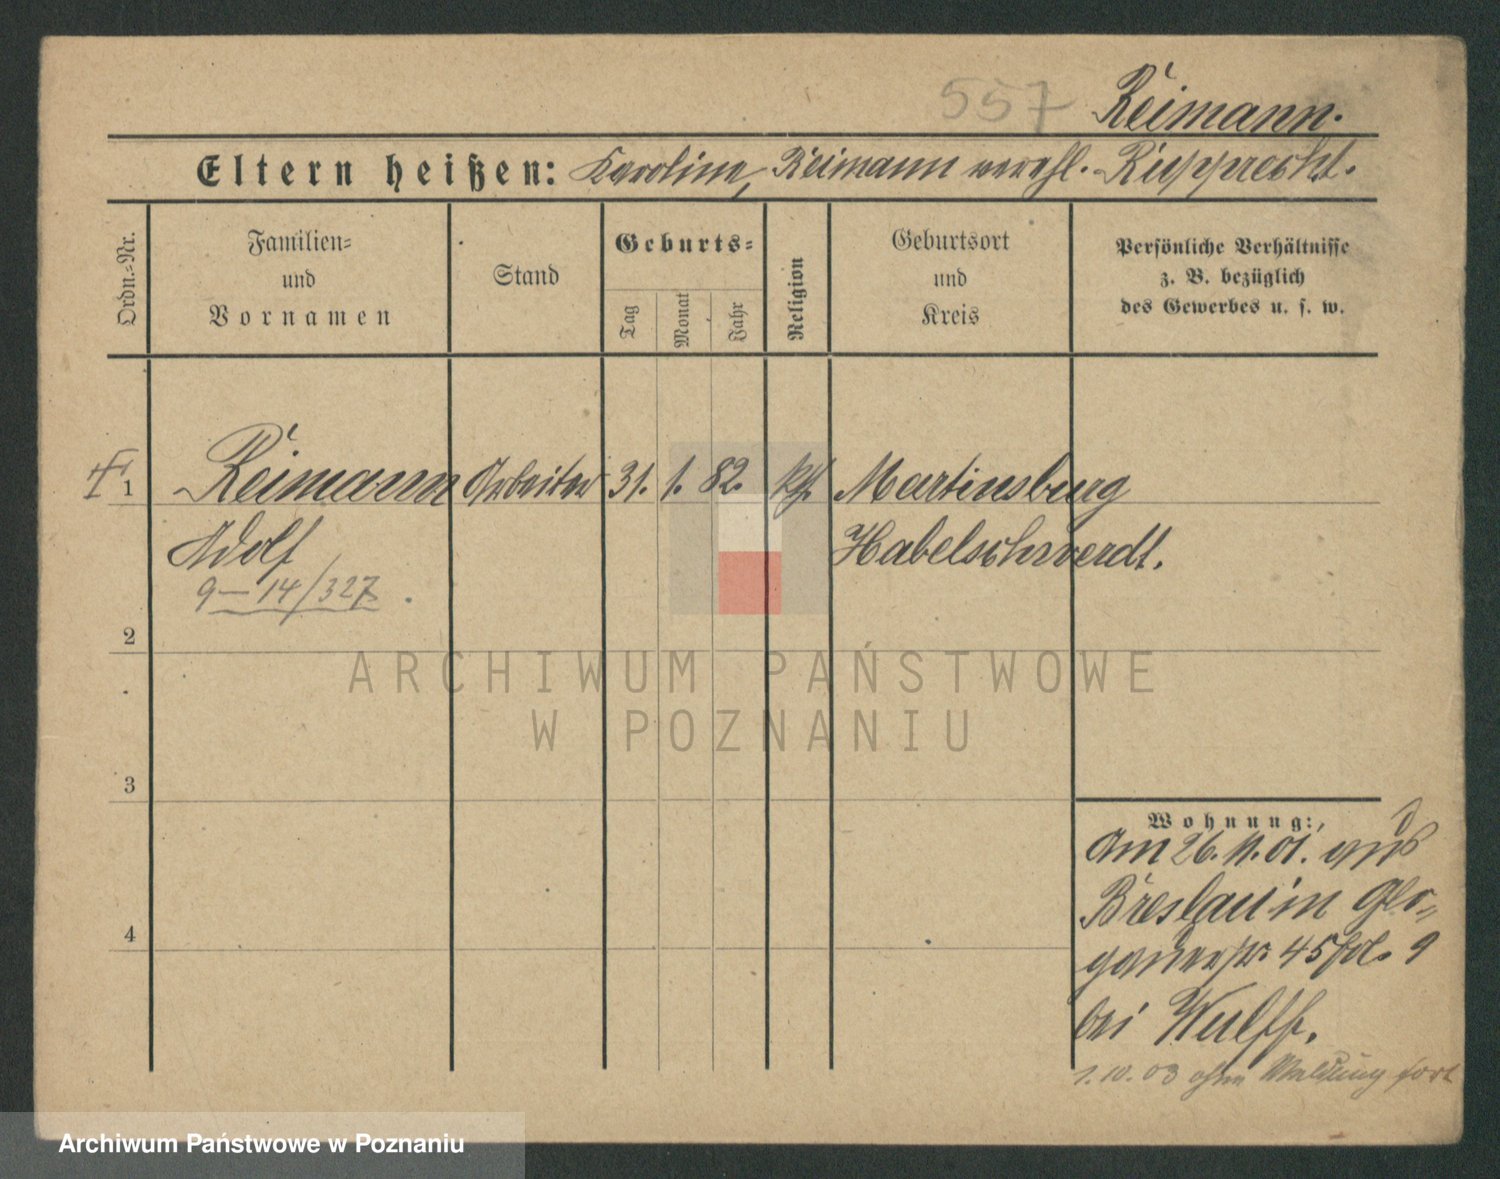 557 Reimann.
Eltern heißen: Karoline, Reimann verehl. Rupprecht.
Ordn.-Nr.
Familien-
und
Vornamen
Stand
Geburts-
Tag
Monat
Jahr
Religion
Geburtsort
und
Kreis
Persönliche Verhältnisse
z. B. bezüglich
des Gewerbes u. s. w.
1 Reimann Arbeiter 31. 1. 82. kth. Martinsburg
Adolf Habelschwerdt.
9-14/327
2
3
4
Wohnung:
Am 26.11.01. aus
Breslau in Glo-
gauerstr. 45 bei
bei Wulff.
1.10.03 ohne Meldung fort
ARCHIWUM PAŃSTWOWE
W POZNANIU
Archiwum Państwowe w Poznaniu